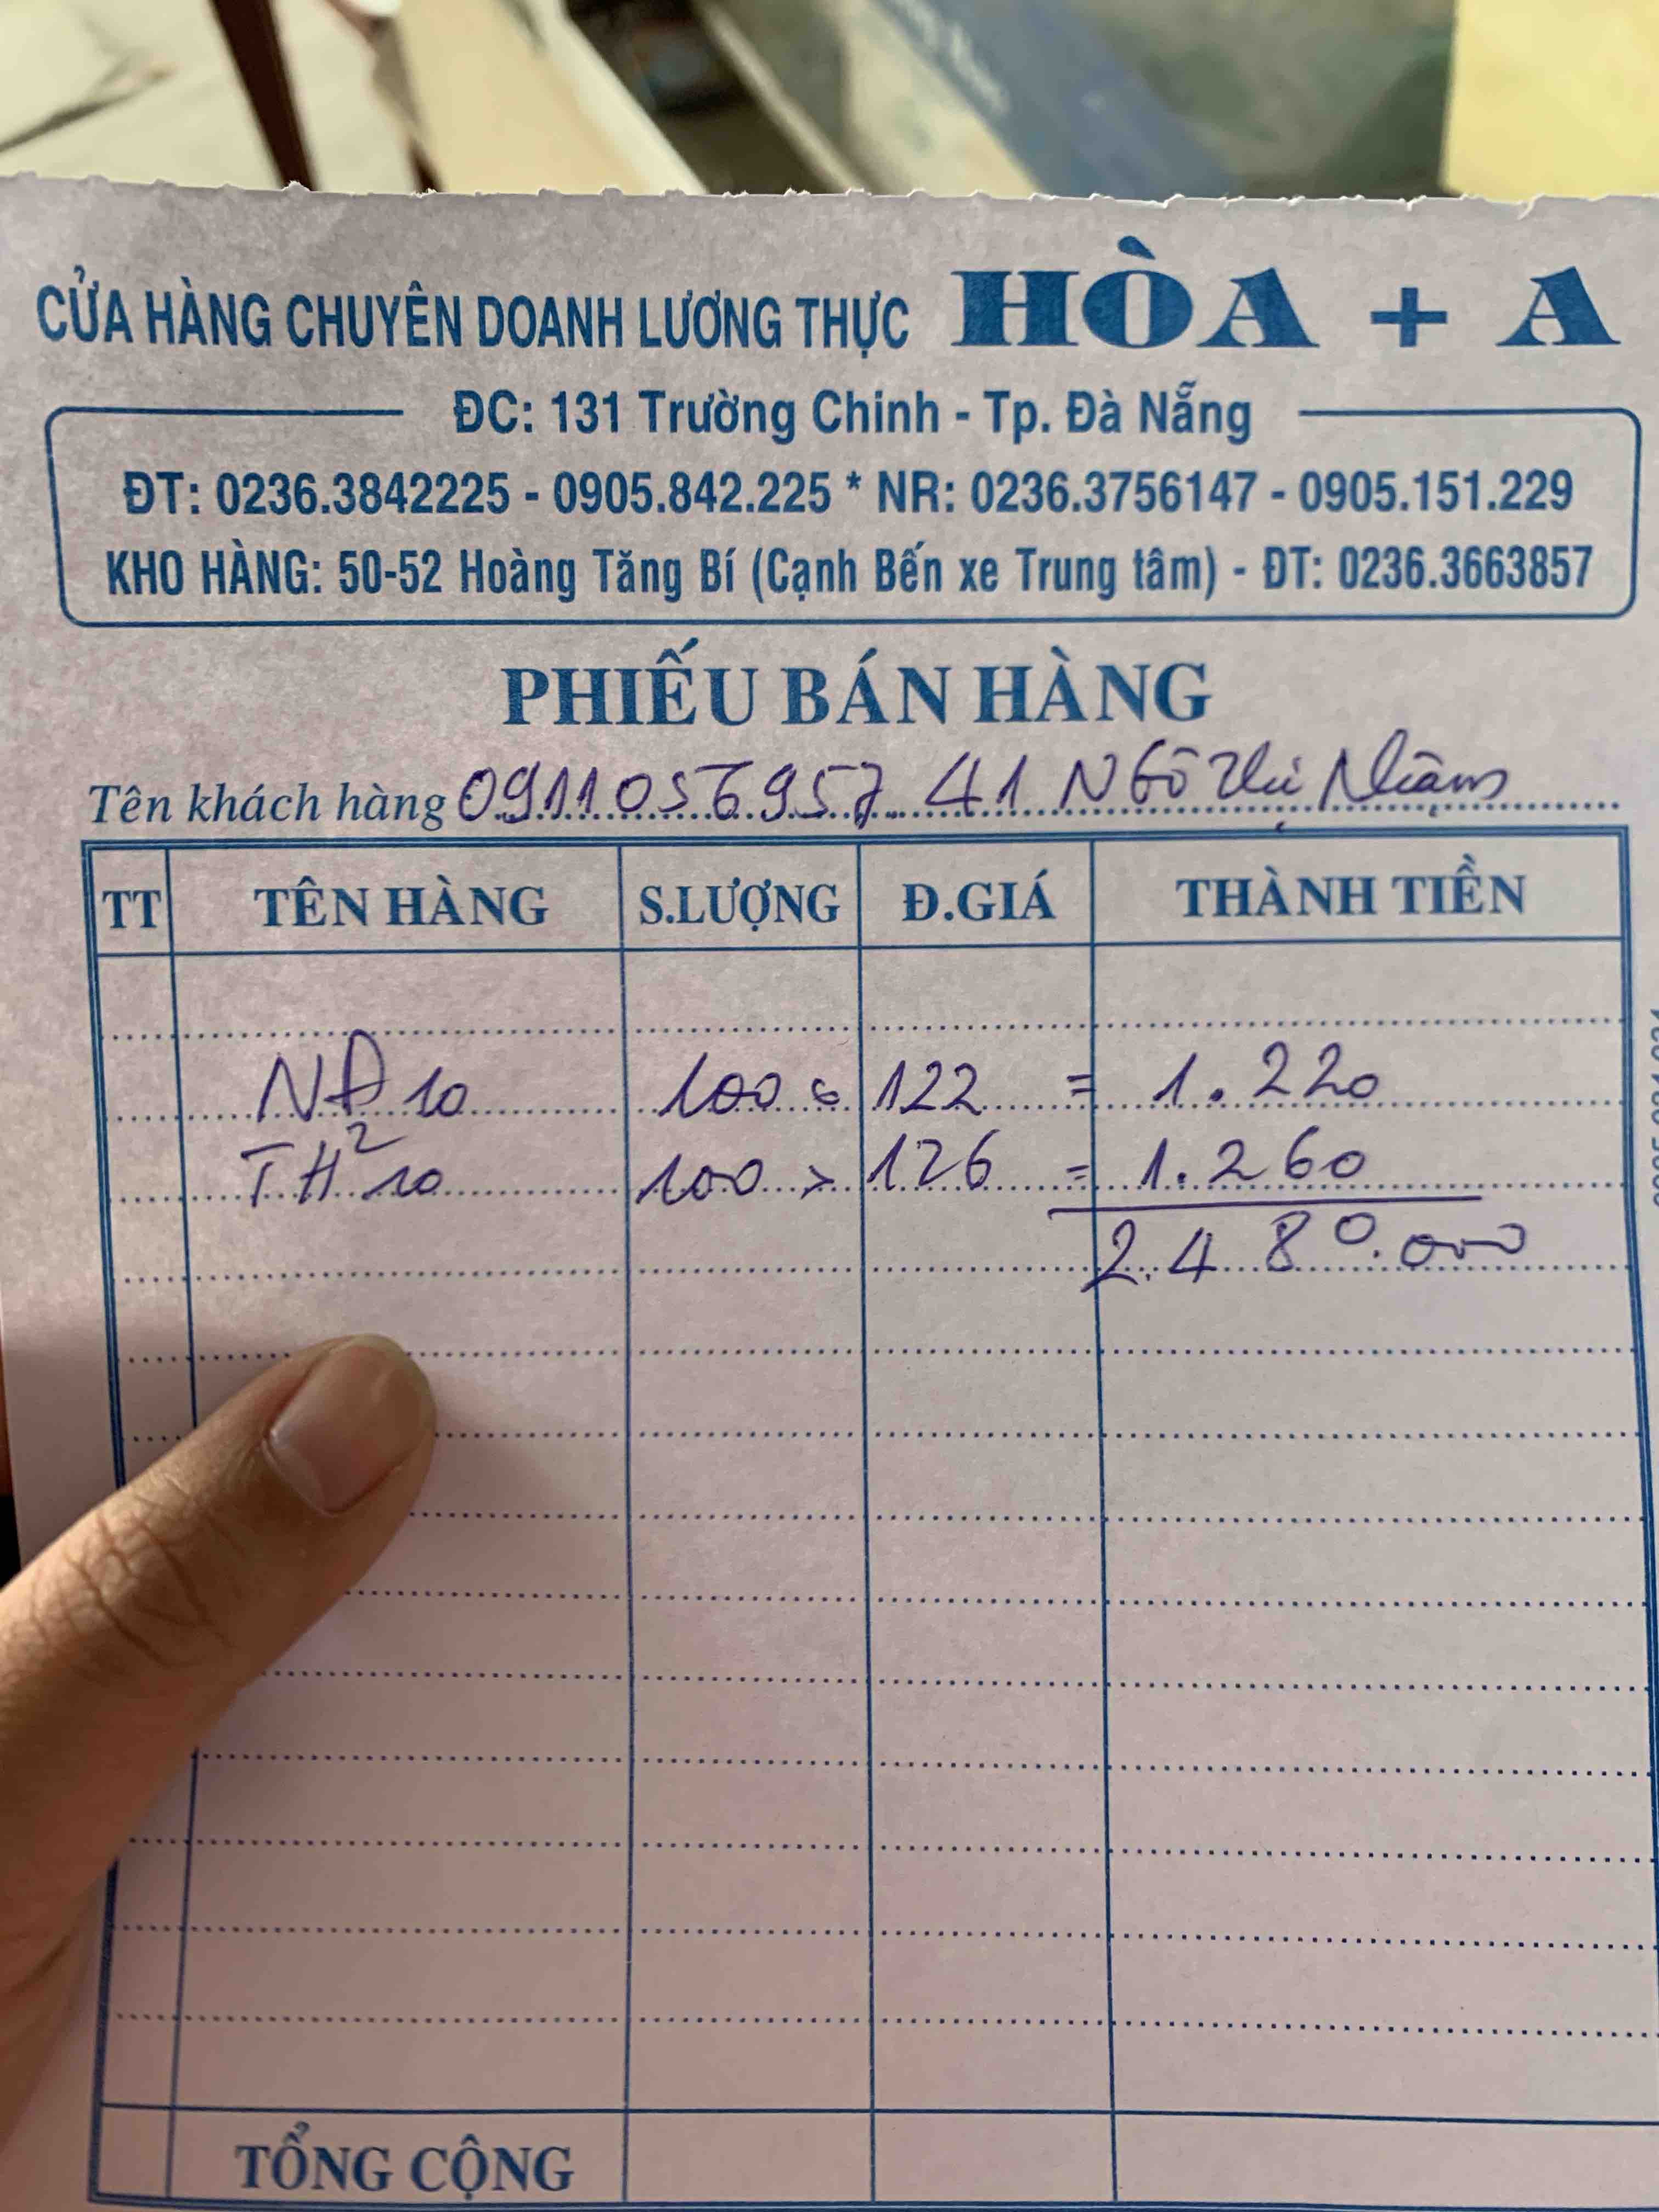 CỬA HÀNG CHUYÊN DOANH LƯƠNG THỰC HÒA + A
ĐC: 131 Trường Chinh - Tp. Đà Nẵng
ĐT: 0236.3842225 - 0905.842.225 * NR: 0236.3756147 - 0905.151.229
KHO HÀNG: 50-52 Hoàng Tăng Bí (Cạnh Bến xe Trung tâm) - ĐT: 0236.3663857
PHIẾU BÁN HÀNG
Tên khách hàng 0911056957 41 Ngô Thì Nhậm
TT TÊN HÀNG S.LƯỢNG Đ.GIÁ THÀNH TIỀN
NĐ 10 100 122 = 1.220
TH² 10 100 126 = 1.260
2.480.000
TỔNG CỘNG